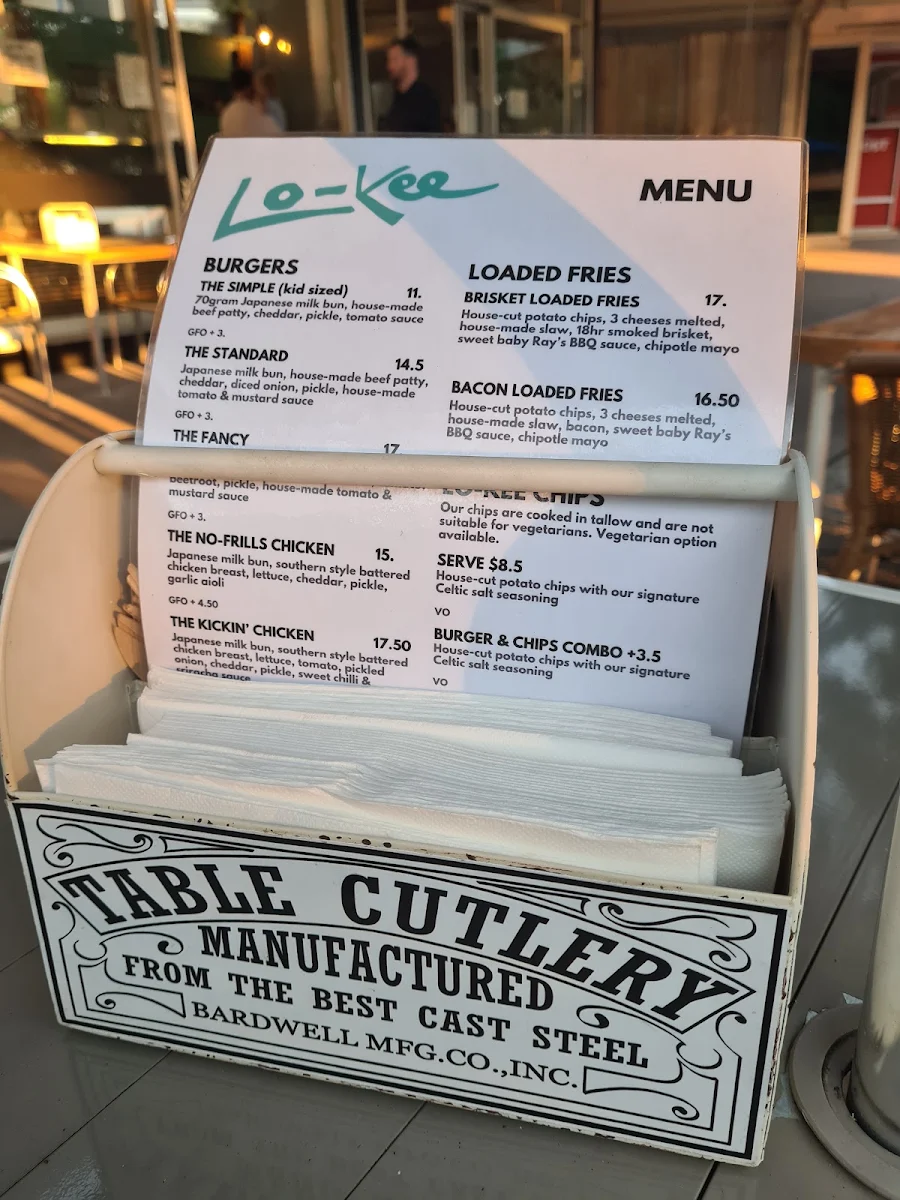 Lo-Kee
MENU
BURGERS
THE SIMPLE (kid sized) 11.
70gram Japanese milk bun, house-made
beef patty, cheddar, pickle, tomato sauce
GFO + 3.
THE STANDARD 14.5
Japanese milk bun, house-made beef patty,
cheddar, diced onion, pickle, house-made
tomato & mustard sauce
GFO + 3.
THE FANCY 17
beetroot, pickle, house-made tomato &
mustard sauce
GFO + 3.
THE NO-FRILLS CHICKEN 15.
Japanese milk bun, southern style battered
chicken breast, lettuce, cheddar, pickle,
garlic aioli
GFO + 4.50
THE KICKIN' CHICKEN 17.50
Japanese milk bun, southern style battered
chicken breast, lettuce, tomato, pickled
onion, cheddar, pickle, sweet chilli &
sriracha sauce
LOADED FRIES
BRISKET LOADED FRIES 17.
House-cut potato chips, 3 cheeses melted,
house-made slaw, 18hr smoked brisket,
sweet baby Ray's BBQ sauce, chipotle mayo
BACON LOADED FRIES 16.50
House-cut potato chips, 3 cheeses melted,
house-made slaw, bacon, sweet baby Ray's
BBQ sauce, chipotle mayo
LO-KEE CHIPS
Our chips are cooked in tallow and are not
suitable for vegetarians. Vegetarian option
available.
SERVE $8.5
House-cut potato chips with our signature
Celtic salt seasoning
VO
BURGER & CHIPS COMBO +3.5
House-cut potato chips with our signature
Celtic salt seasoning
VO
TABLE CUTLERY
MANUFACTURED
FROM THE BEST CAST STEEL
BARDWELL MFG.CO.,INC.